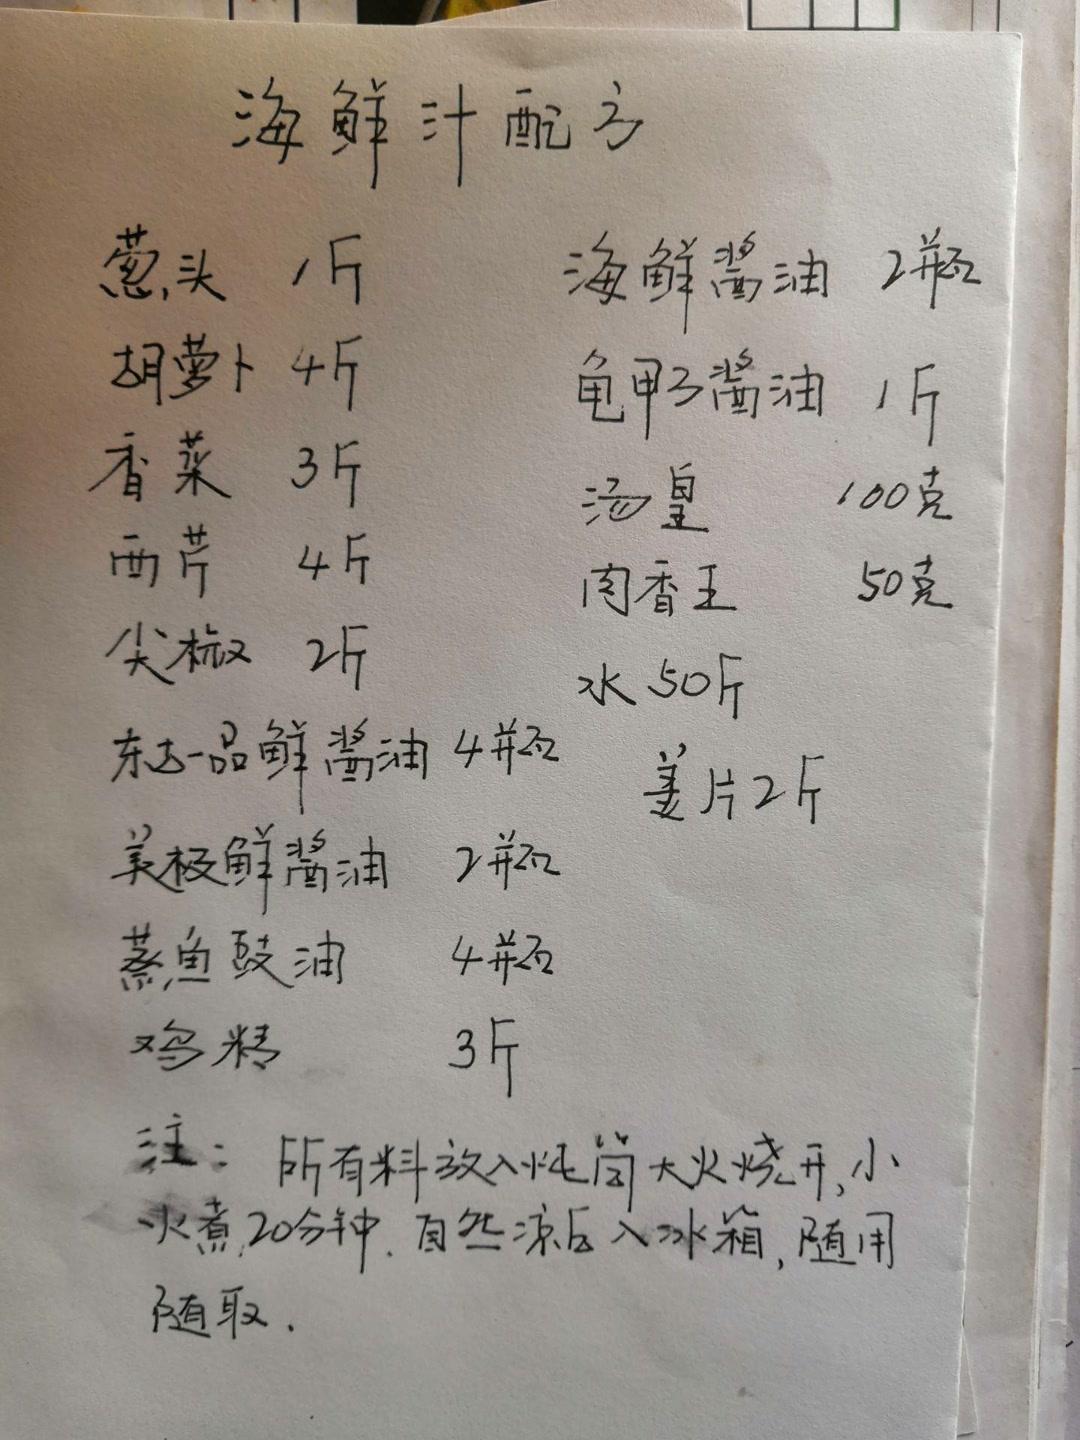 海鲜汁配方
葱头 1斤
胡萝卜 4斤
香菜 3斤
西芹 4斤
尖椒 2斤
东古一品鲜酱油 4瓶
美极鲜酱油 2瓶
蒸鱼豉油 4瓶
鸡精 3斤
海鲜酱油 2瓶
龟甲万酱油 1斤
汤皇 100克
肉香王 50克
水 50斤
姜片 2斤
注：所有料放入炖筒大火烧开,小
火煮20分钟.自然凉后入冰箱,随用
随取.